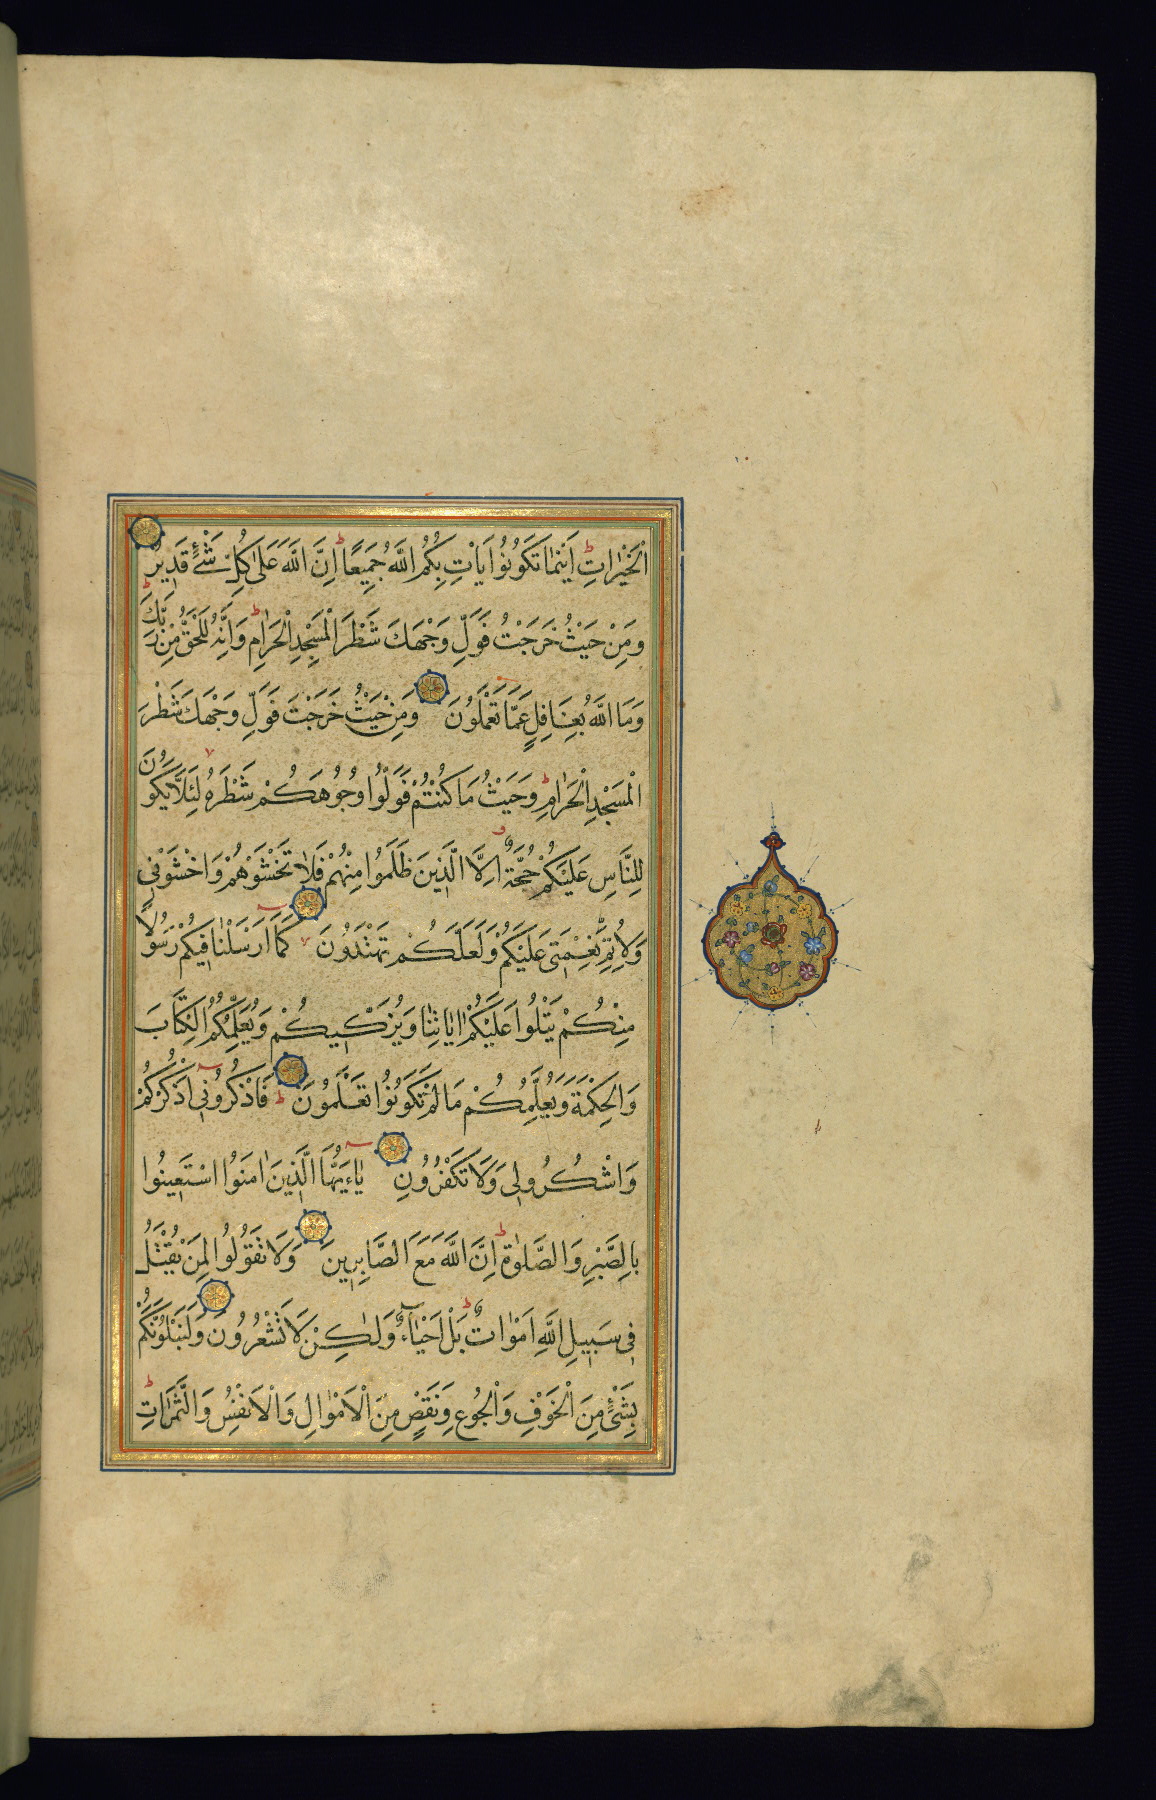 الْخَيْرَاتِ ط اَيْنَمَا تَكُونُوا يَأْتِ بِكُمُ اللَّهُ جَمِيعًا ط اِنَّ اللَّهَ عَلَى كُلِّ شَيْءٍ قَدِيرٌ
وَمِنْ حَيْثُ خَرَجْتَ فَوَلِّ وَجْهَكَ شَطْرَ الْمَسْجِدِ الْحَرَامِ ط وَاِنَّهُ لَلْحَقُّ مِنْ رَبِّكَ ط
وَمَا اللَّهُ بِغَافِلٍ عَمَّا تَعْمَلُونَ وَمِنْ حَيْثُ خَرَجْتَ فَوَلِّ وَجْهَكَ شَطْرَ
الْمَسْجِدِ الْحَرَامِ ط وَحَيْثُ مَا كُنْتُمْ فَوَلُّوا وُجُوهَكُمْ شَطْرَهُ لِئَلَّا يَكُونَ
لِلنَّاسِ عَلَيْكُمْ حُجَّةٌ اِلَّا الَّذِينَ ظَلَمُوا مِنْهُمْ فَلَا تَخْشَوْهُمْ وَاخْشَوْنِي
وَلِاُتِمَّ نِعْمَتِي عَلَيْكُمْ وَلَعَلَّكُمْ تَهْتَدُونَ كَمَا اَرْسَلْنَا فِيكُمْ رَسُولًا
مِنْكُمْ يَتْلُوا عَلَيْكُمْ اٰيَاتِنَا وَيُزَكِّيكُمْ وَيُعَلِّمُكُمُ الْكِتَابَ
وَالْحِكْمَةَ وَيُعَلِّمُكُمْ مَا لَمْ تَكُونُوا تَعْلَمُونَ ط فَاذْكُرُونِي اَذْكُرْكُمْ
وَاشْكُرُوا لِي وَلَا تَكْفُرُونِ يَاءَيُّهَا الَّذِينَ اٰمَنُوا اسْتَعِينُوا
بِالصَّبْرِ وَالصَّلٰوةِ ط اِنَّ اللَّهَ مَعَ الصَّابِرِينَ وَلَا تَقُولُوا لِمَنْ يُقْتَلُ
فِي سَبِيلِ اللَّهِ اَمْوَاتٌ ط بَلْ اَحْيَاءٌ وَلٰكِنْ لَا تَشْعُرُونَ وَلَنَبْلُوَنَّكُمْ
بِشَيْءٍ مِنَ الْخَوْفِ وَالْجُوعِ وَنَقْصٍ مِنَ الْاَمْوَالِ وَالْاَنْفُسِ وَالثَّمَرَاتِ ط